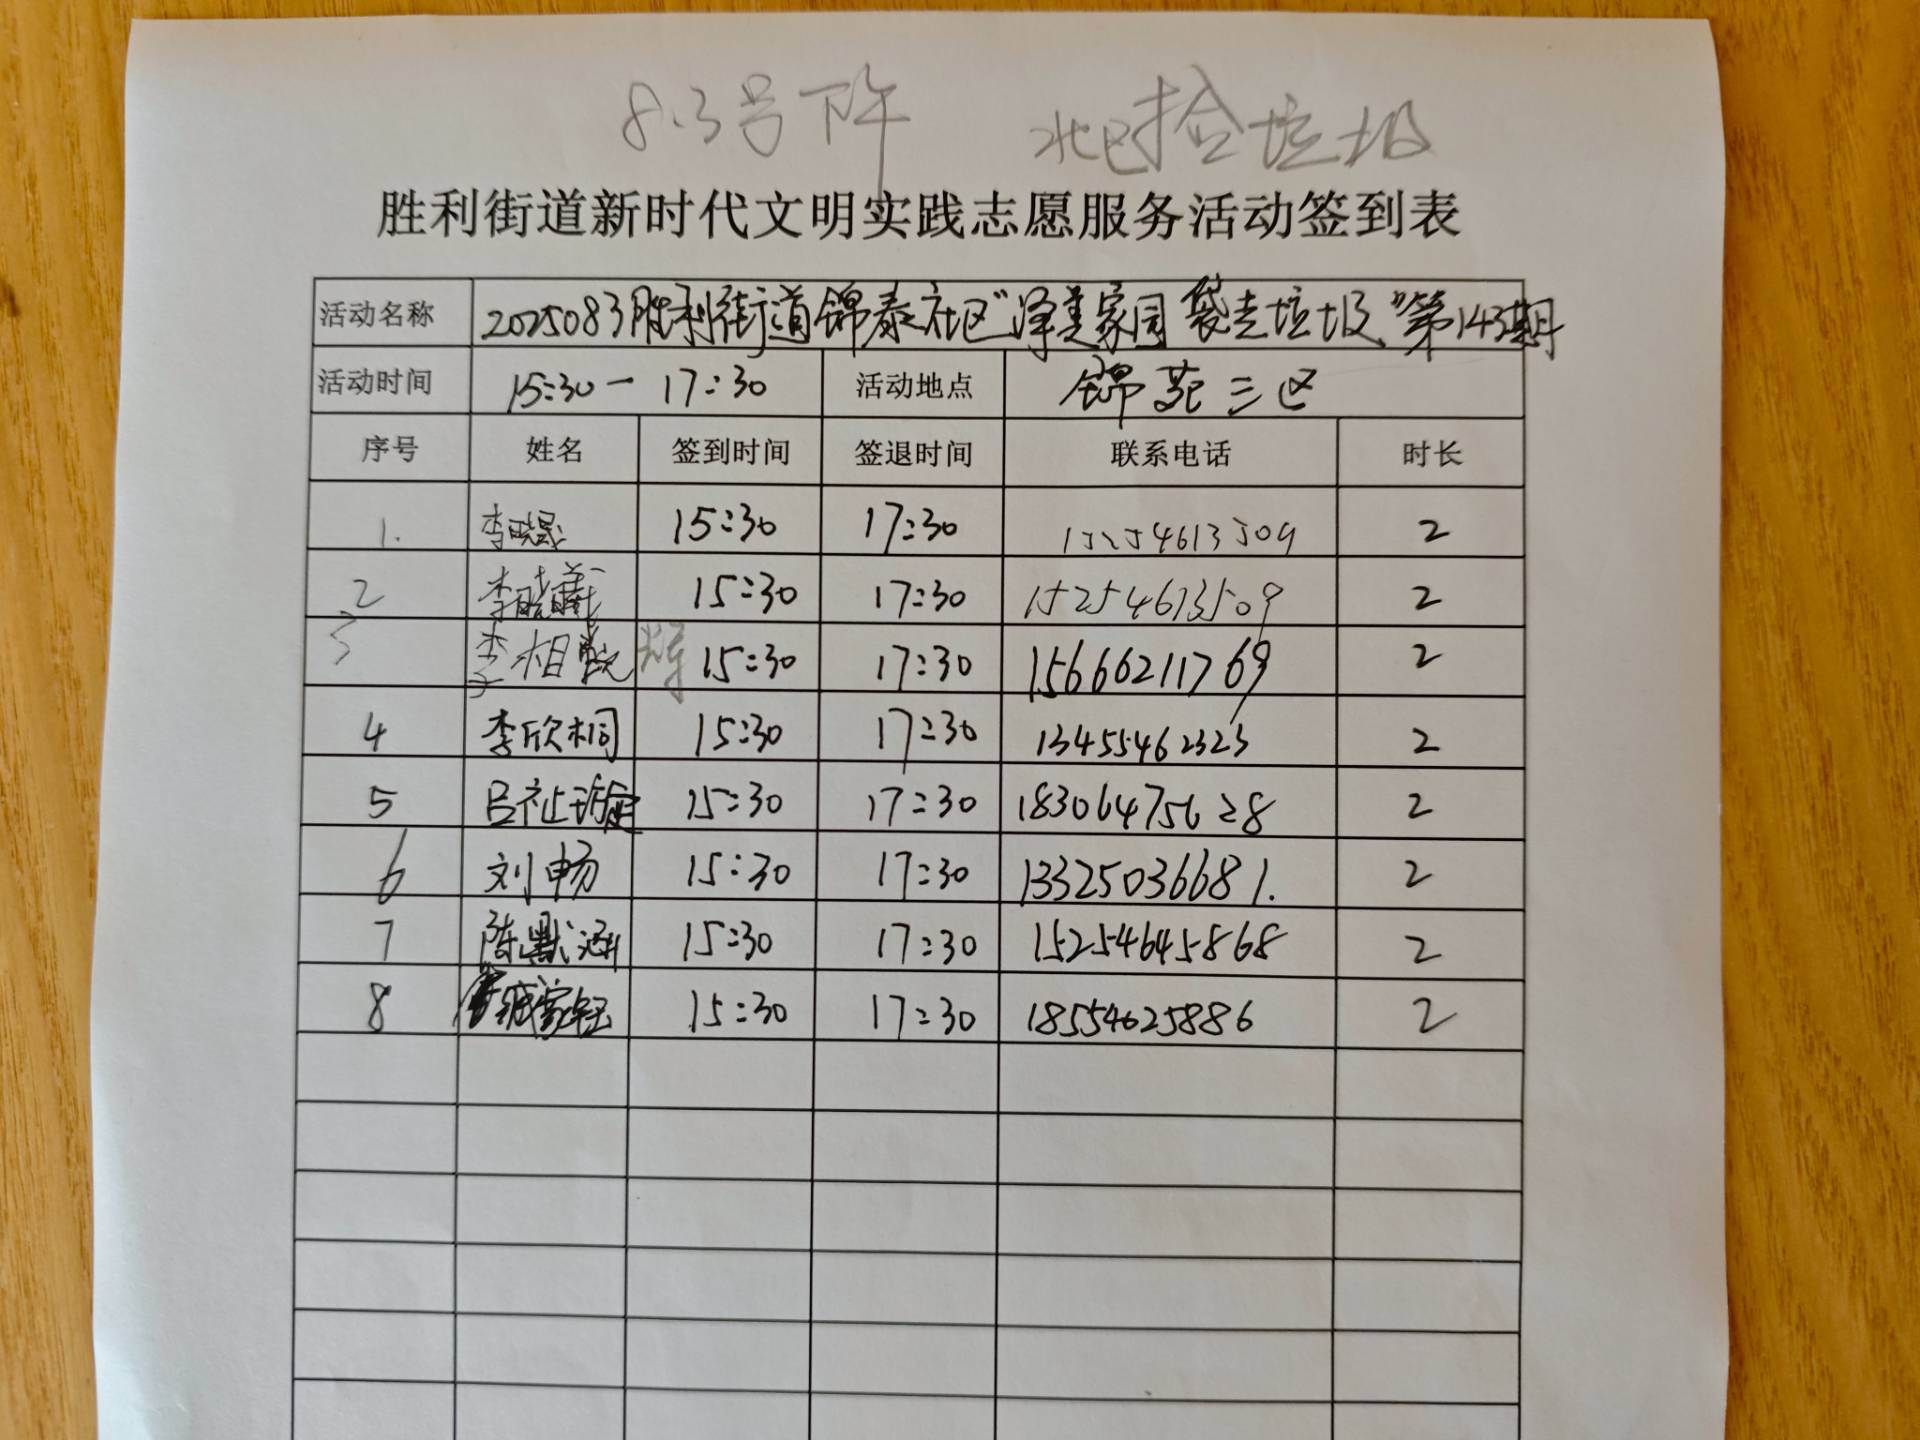 8.3号下午 北区捡垃圾
胜利街道新时代文明实践志愿服务活动签到表
活动名称 2025083胜利街道锦泰社区"泽美家园 袋走垃圾"第143期
活动时间 15:30一17:30 活动地点 锦苑三区
序号 姓名 签到时间 签退时间 联系电话 时长
1. 李晓晟 15:30 17:30 15254613509 2
2 李晓曦 15:30 17:30 15254613509 2
3 李相 15:30 17:30 15666211769 2
4 李欣桐 15:30 17:30 13455462323 2
5 吕祉 15:30 17:30 18306475628 2
6 刘畅 15:30 17:30 13325036681. 2
7 陈默涵 15:30 17:30 15254645868 2
8 臧家钰 15:30 17:30 18554625886 2